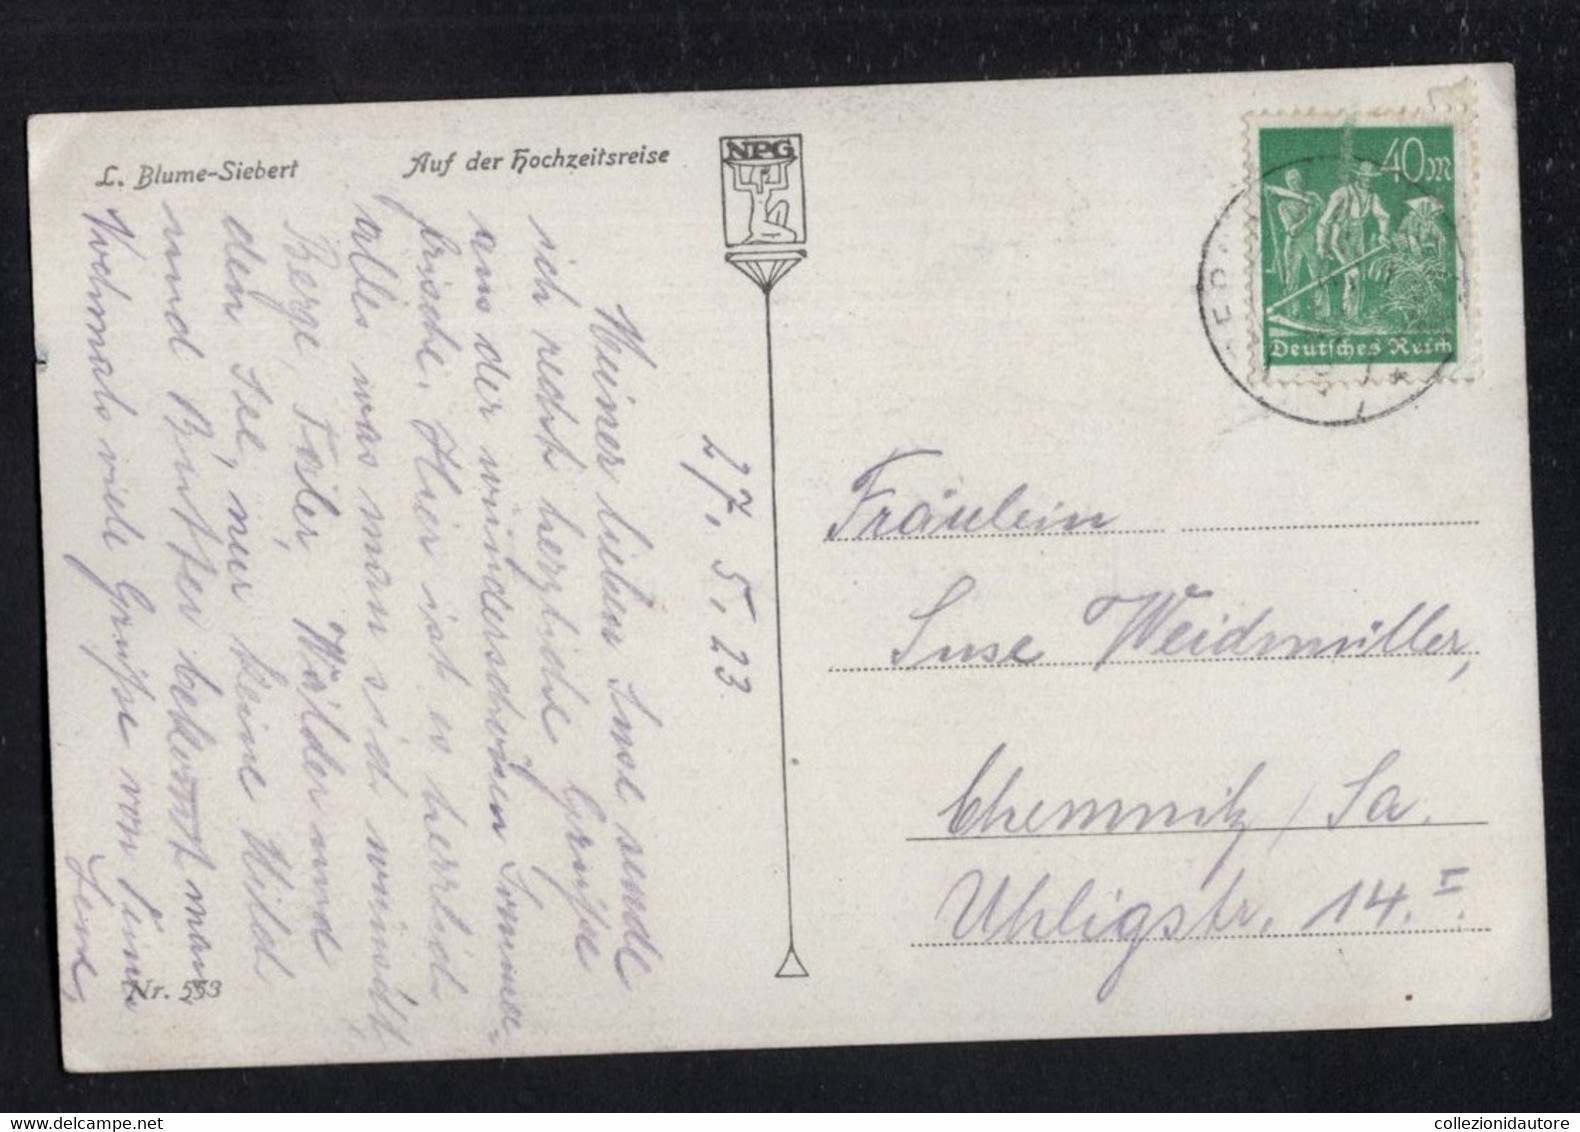 L. Blume-Siebert
Auf der Hochzeitsreise
NPG
40M
Deutsches Reich
27.5.23
Meiner lieben Suse sende
ich recht herzliche Grüße
aus der wunderschönen Somme-
frische. Hier ist es herrlich
alles was man sich wünscht,
Berge, Täler, Wälder und
den See, nur keine Wild
und Butter bekommt man
Nochmals viele Grüße von Deine
Lene,
Nr. 553
Fräulein
Suse Weidmüller,
Chemnitz / Sa.
Uhligstr. 14. I.
collezionidautore